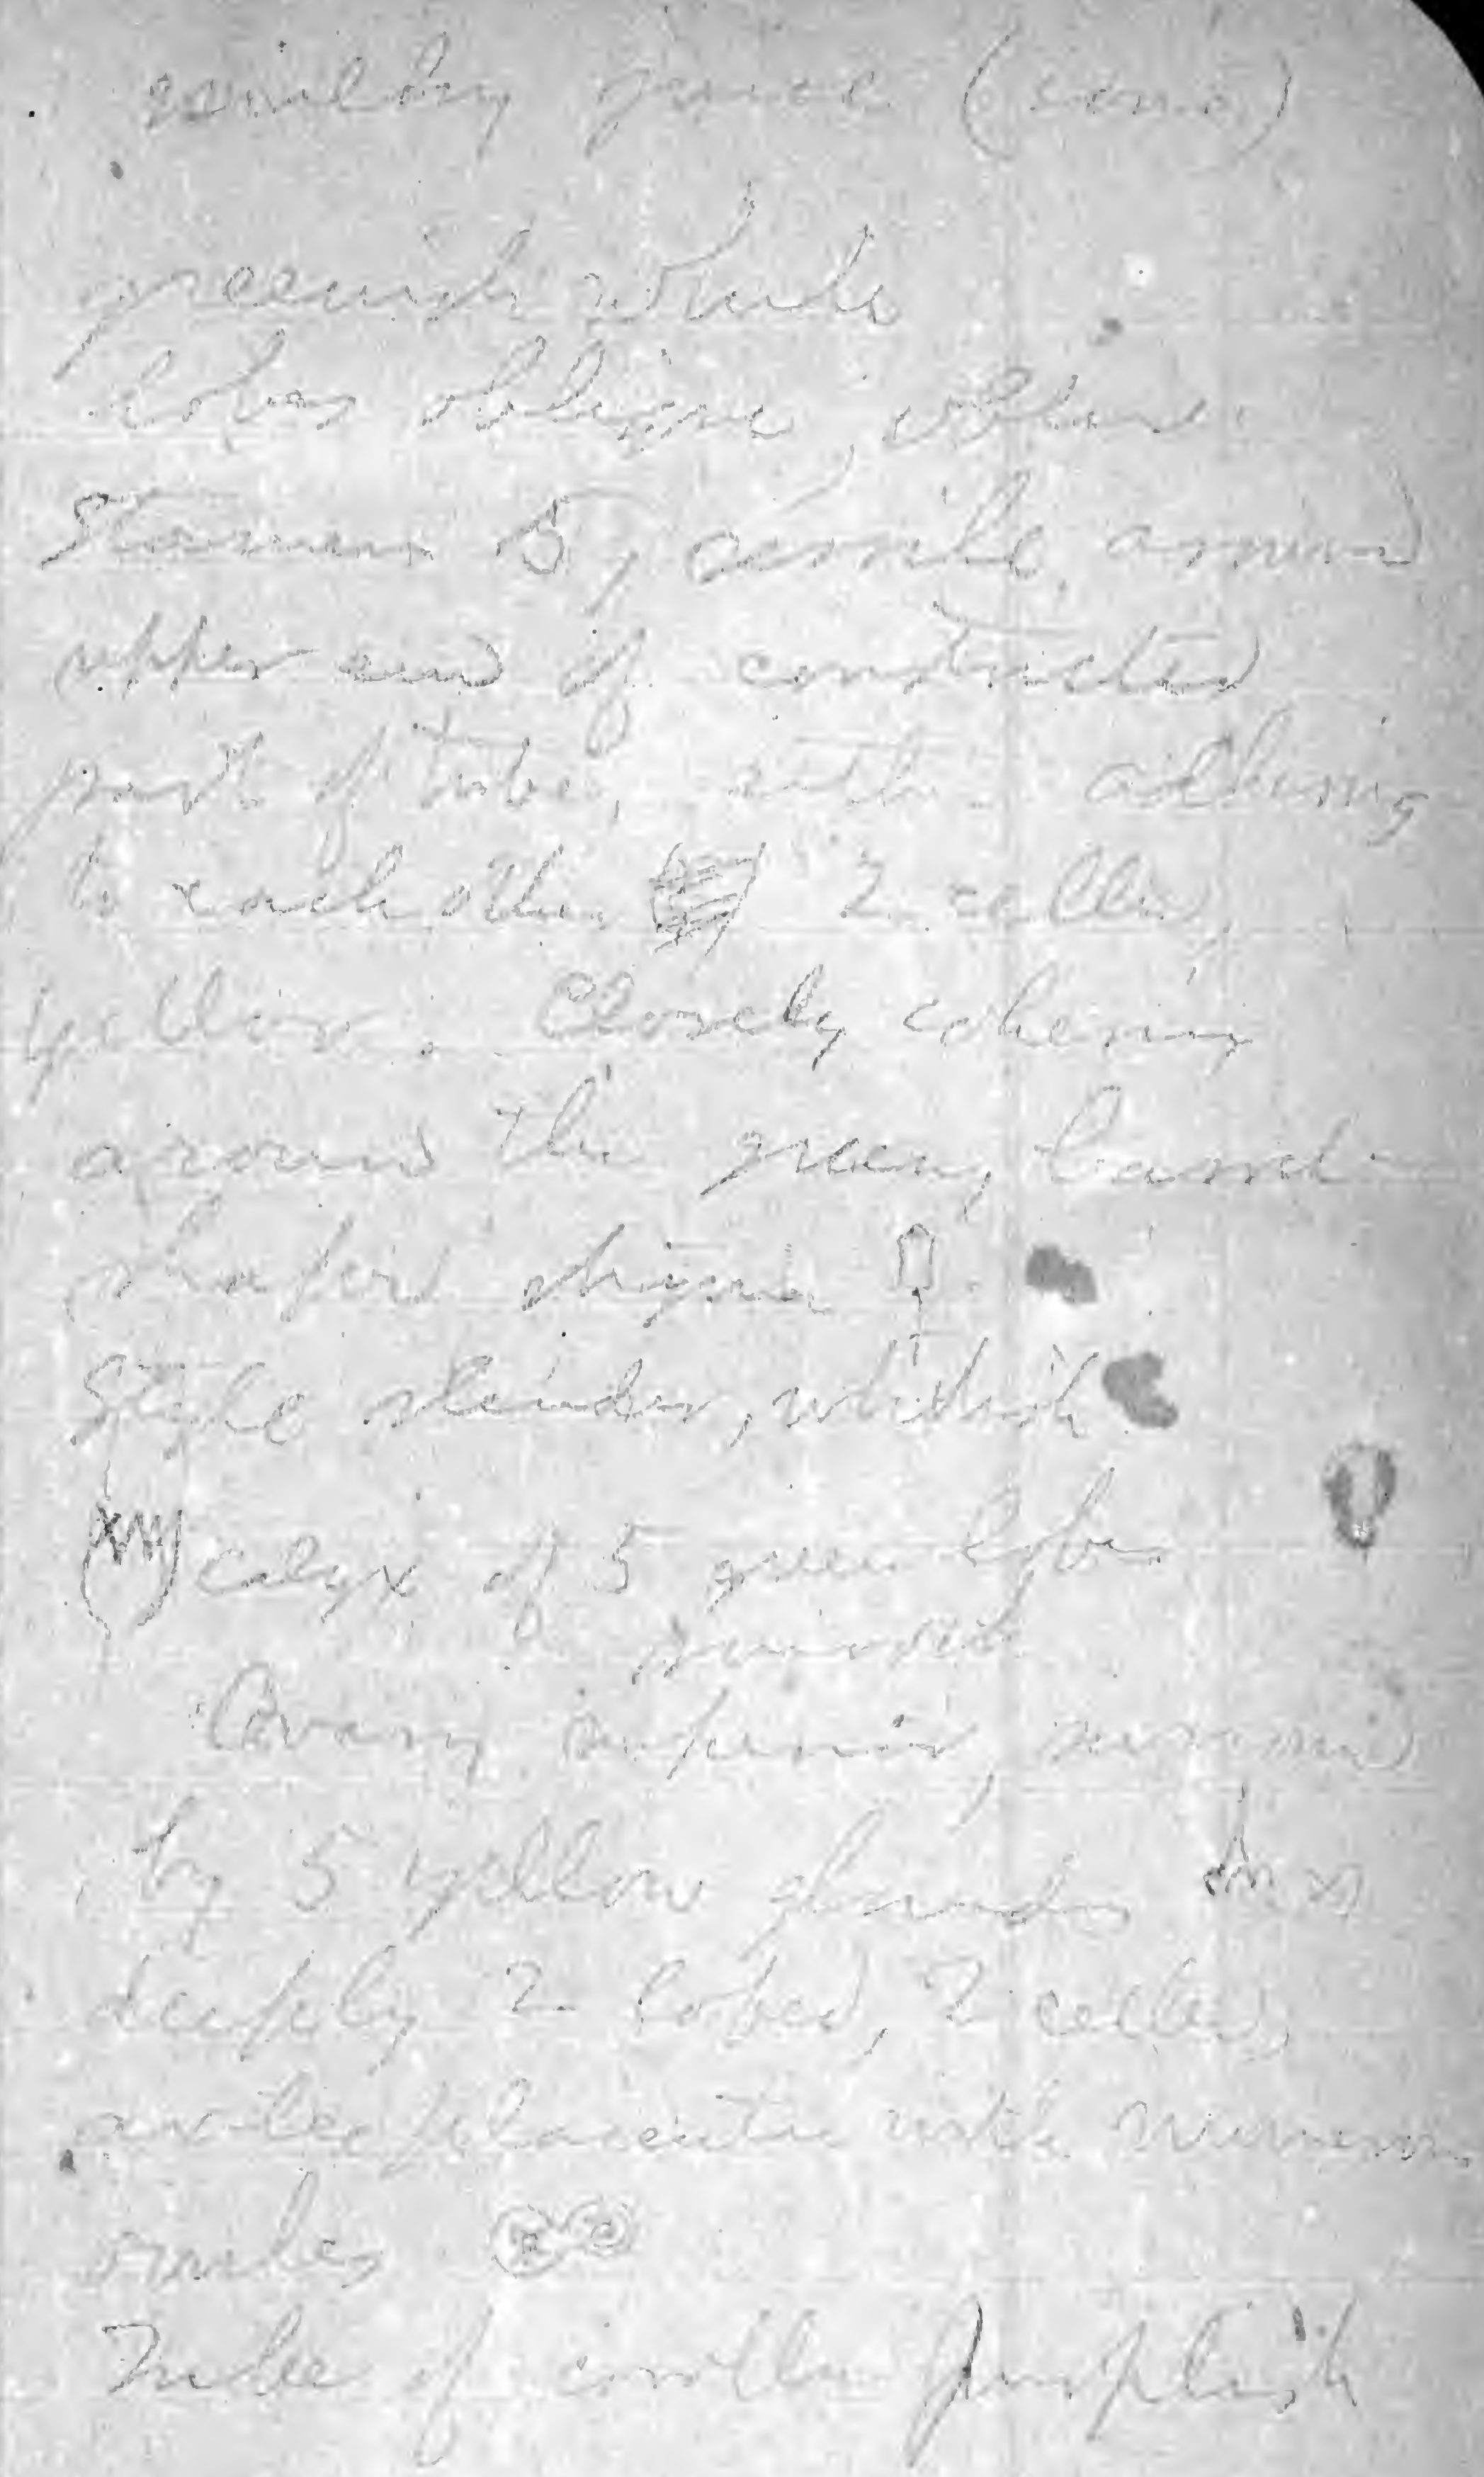 milky juice (cont)
greenish white
Lobes oblique, white
Stamens 5, sessile, around
upper end of constricted
part of tube, anthers adhering
to each other 2 celled,
yellow. Closely cohering
around the green, barrel-
shaped stigma
Style slender, whitish
calyx of 5 green lobes
Ovary superior, surround
by 5 yellow glands
deeply 2 lobed, 2 celled,
axile placentae with numerous
ovules
Tube of corolla purplish